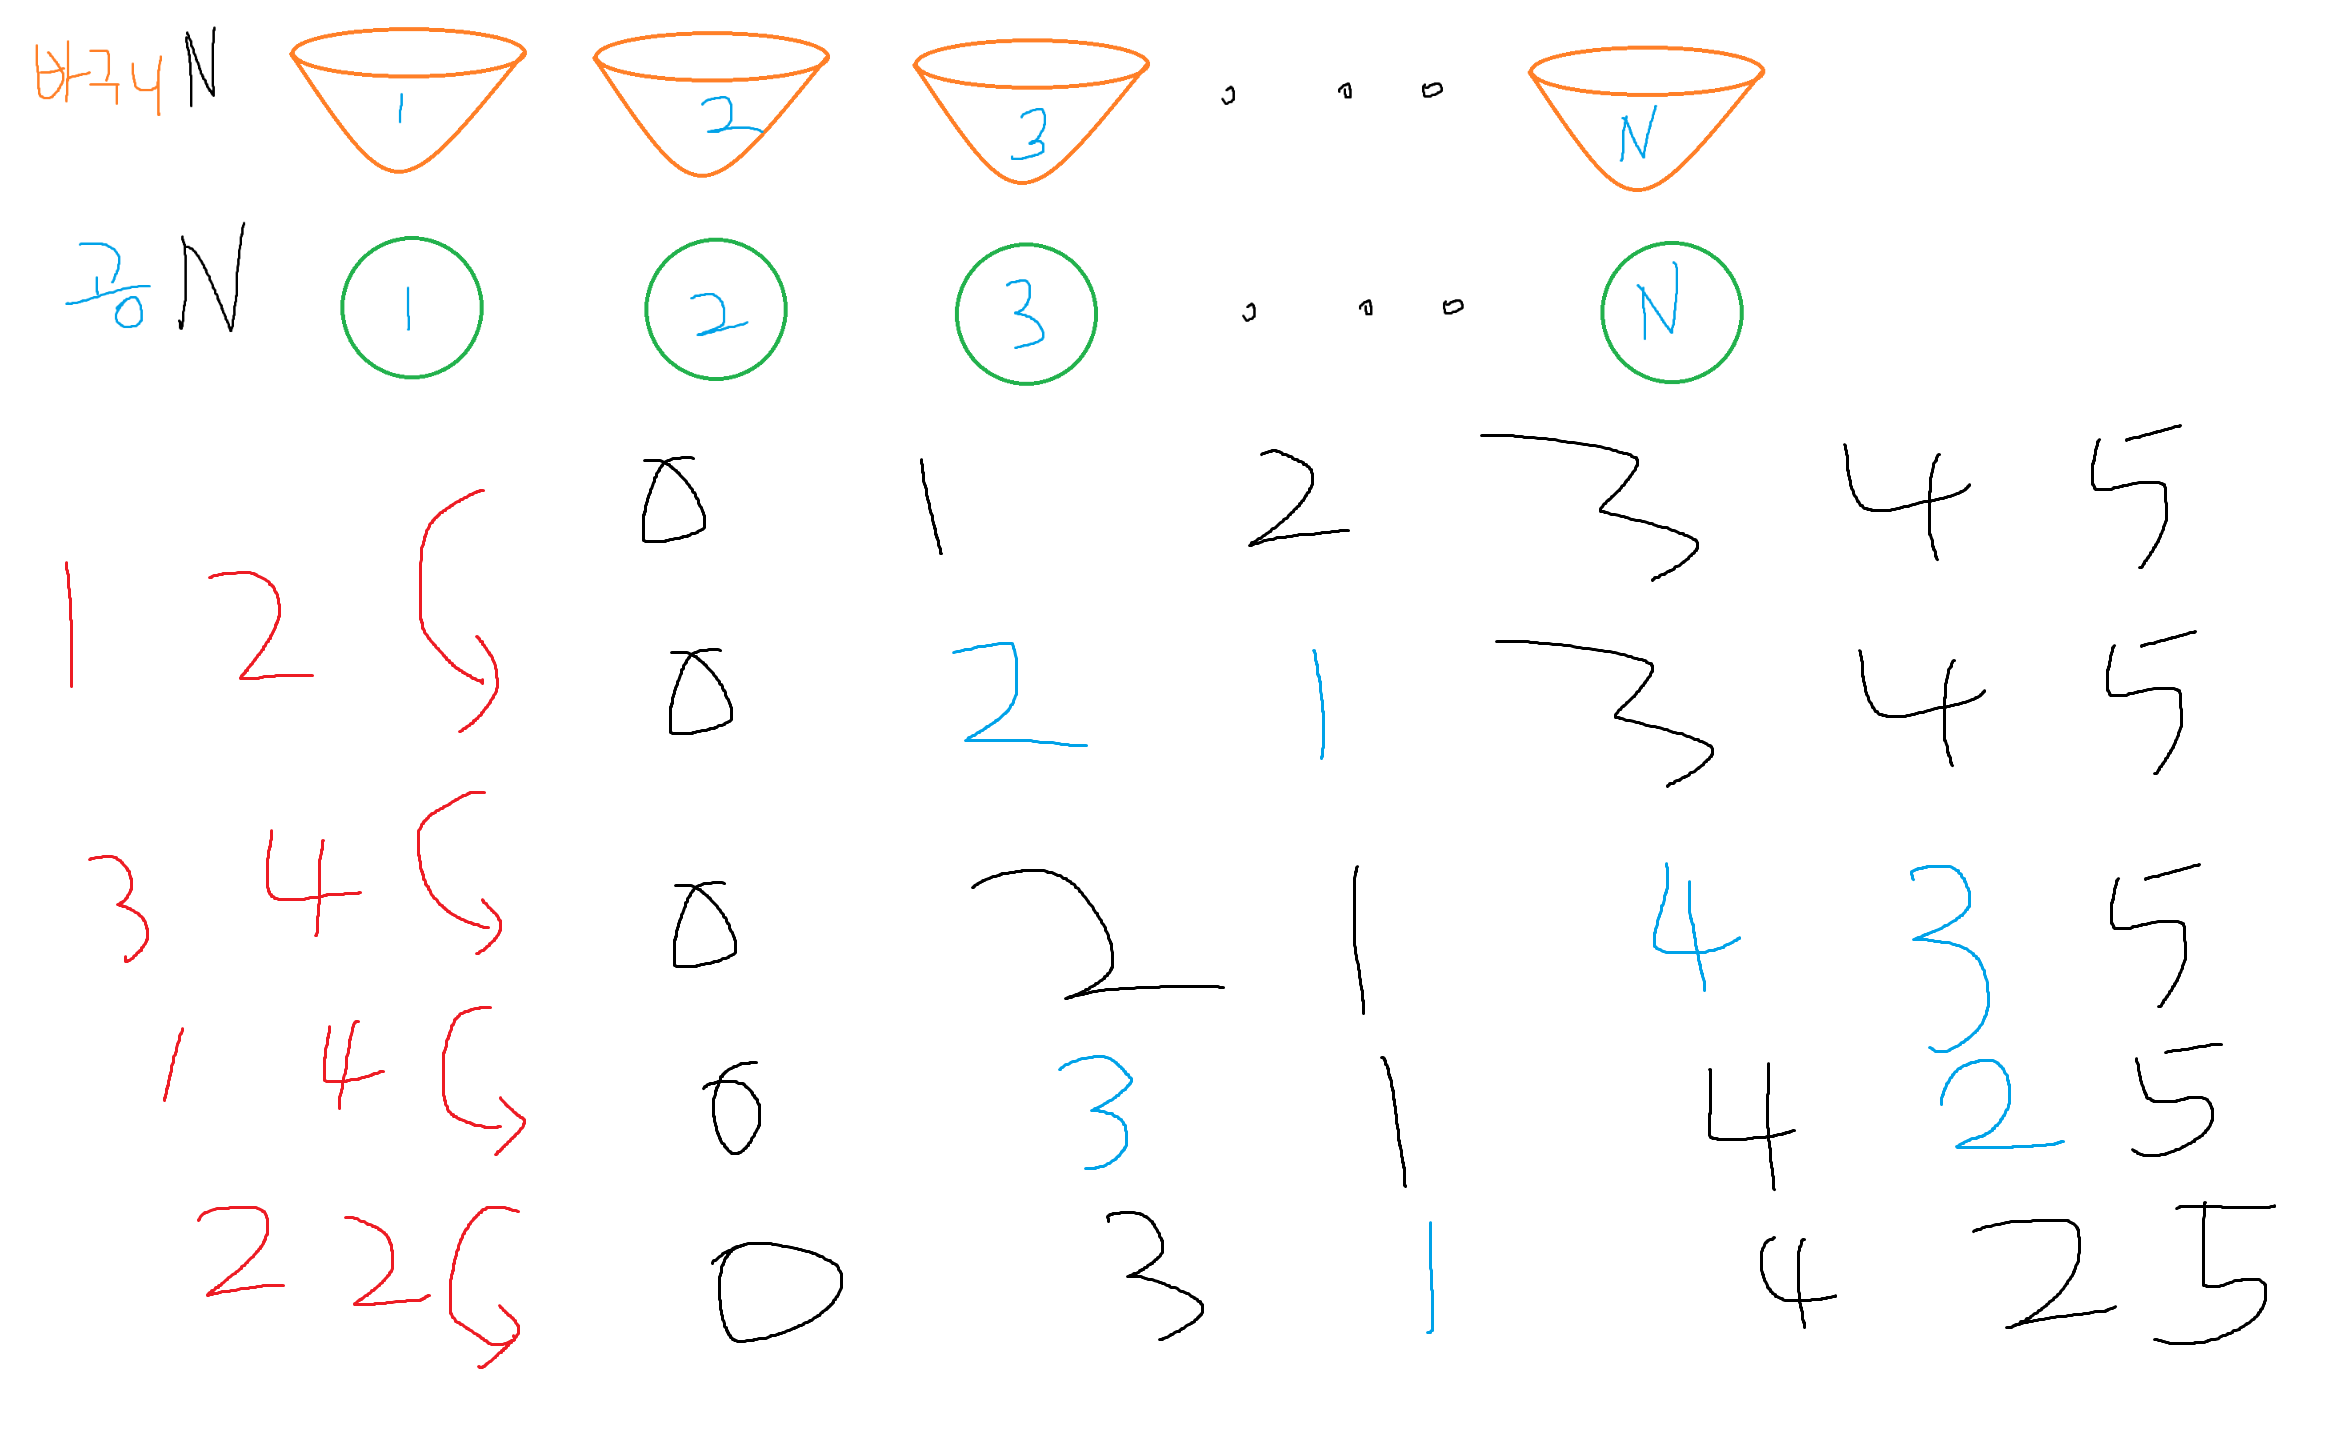 바구니 N 1 2 3 . . . N
공 N 1 2 3 . . . N
0 1 2 3 4 5
1 2 0 2 1 3 4 5
3 4 0 2 1 4 3 5
1 4 0 3 1 4 2 5
2 2 0 3 1 4 2 5